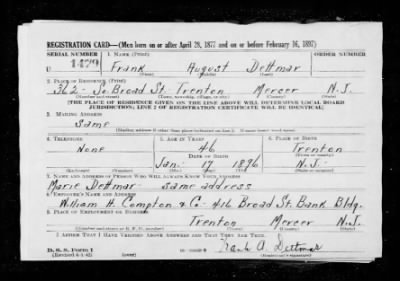 REGISTRATION CARD—(Men born on or after April 28, 1877 and on or before February 16, 1897)
SERIAL NUMBER 1. NAME (Print) ORDER NUMBER
U 1479 Frank August Dettmar
(First) (Middle) (Last)
2. PLACE OF RESIDENCE (Print)
362 - So. Broad St. Trenton Mercer N.J.
(Number and street) (Town, township, village, or city) (County) (State)
[THE PLACE OF RESIDENCE GIVEN ON THE LINE ABOVE WILL DETERMINE LOCAL BOARD
JURISDICTION; LINE 2 OF REGISTRATION CERTIFICATE WILL BE IDENTICAL]
3. MAILING ADDRESS
Same
[Mailing address if other than place indicated on line 2. If same insert word same]
4. TELEPHONE 5. AGE IN YEARS 6. PLACE OF BIRTH
None 46 Trenton
DATE OF BIRTH (Town or county)
Jan. 17 1896 N.J.
7. NAME AND ADDRESS OF PERSON WHO WILL ALWAYS KNOW YOUR ADDRESS
Marie Dettmar - same address
8. EMPLOYER'S NAME AND ADDRESS
William H. Compton & Co. - 416 Broad St. Bank Bldg.
9. PLACE OF EMPLOYMENT OR BUSINESS
Trenton Mercer N.J.
(Number and street or R. F. D. number) (Town) (County) (State)
I AFFIRM THAT I HAVE VERIFIED ABOVE ANSWERS AND THAT THEY ARE TRUE.
D. S. S. Form 1
(Revised 4-1-42) Frank A. Dettmar